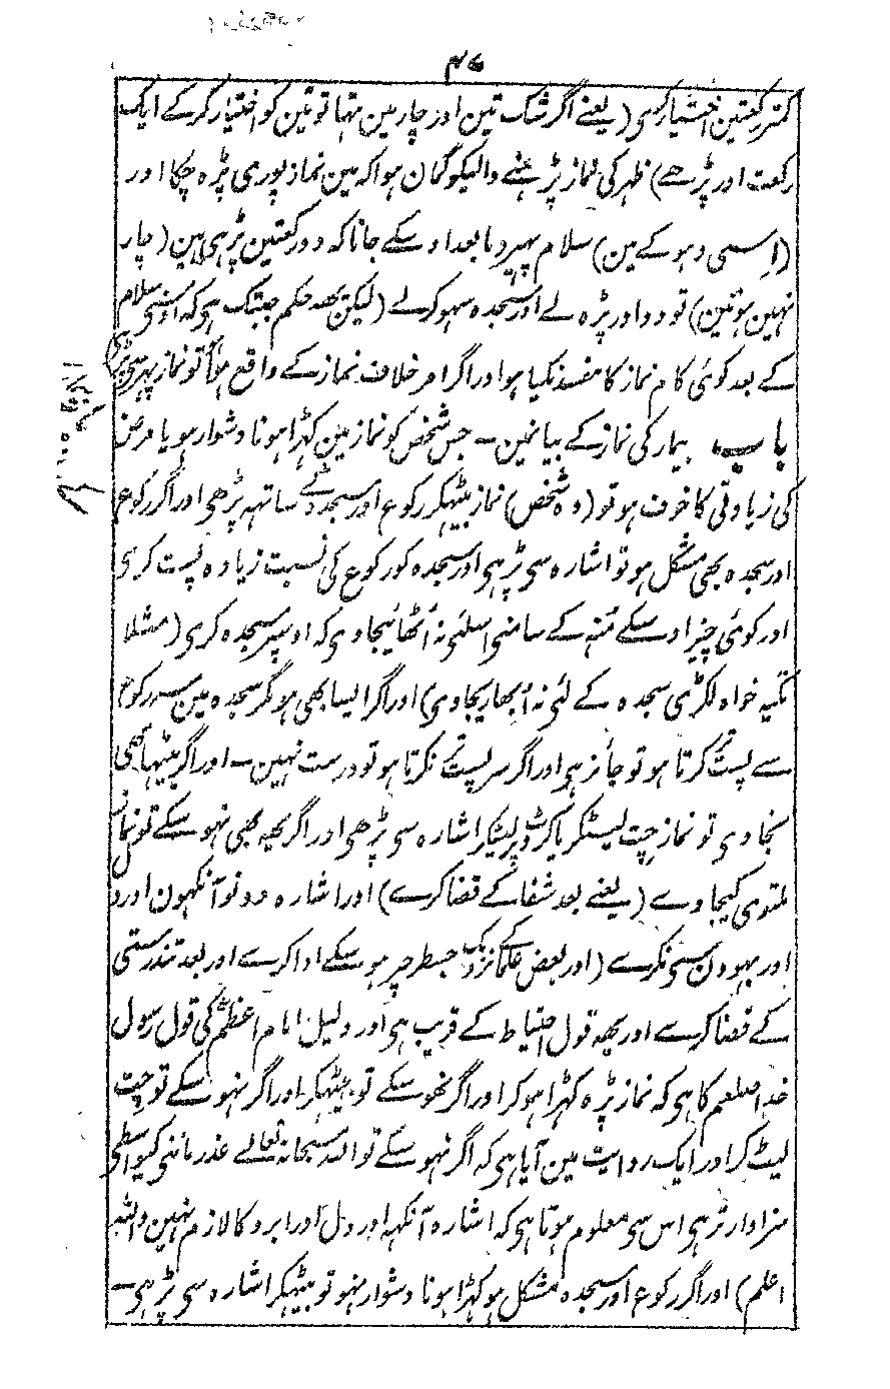 ۴۷
کمتر رکعتین اختیار کری (یعنے اگر شک تین اور چار مین تہا تو تین کو اختیار کر کے ایک
رکعت اور پڑھے) ظہر کی نماز پڑہنے والیکو گمان ہوا کہ مین نماز پوری پڑہ چکا اور
(اسی دہوکے مین) سلام پہیر دیا بعد اوسکے جانا کہ دو رکعتین پڑہی ہین (چار
نہین ہوئین) تو دو اور پڑہ لے اور سجدہ سہو کر لے (لیکن یہہ حکم جبتک ہی کہ اوسنی سلام
کے بعد کوئی کام نماز کا مفسد نکیا ہو اور اگر امر خلاف نماز کے واقع ہوا تو نماز پہر سی پڑہی
باب بیمار کی نماز کے بیانمین ـ جس شخص کو نماز مین کہڑا ہونا دشوار ہو یا مرض
کی زیادتی کا خوف ہو تو (وہ شخص) نماز بیٹہکر رکوع اور سجدے کے ساتہہ پڑھی اور اگر رکوع
اور سجدہ بھی مشکل ہو تو اشارہ سی پڑہی اور سجدہ کو رکوع کی نسبت زیادہ پست کری
اور کوئی چیز اوسکے منہہ کے سامنی اسلئی نہ اُٹھائیجاوی کہ اوسپر سجدہ کری (مثلا
تکیہ خواہ لکڑی سجدہ کے لئی نہ اُبھاریجاوی) اور اگر ایسا بھی ہو مگر سجدہ مین سر رکوع
سے پست کرتا ہو تو جائز ہی اور اگر سر پست نکرتا ہو تو درست نہین ـ اور اگر بیٹہا بھی
نجاوی تو نماز چِت لیٹکر یا کروٹ پر لیٹکر اشارہ سی پڑھی اور اگر یہہ بھی نہو سکے تو نماز
ملتوی کیجاوے (یعنے بعد شفا کے قضا کرے) اور اشارہ دونو آنکہون اور دل
اور بہوون سی نکرے (اور بعض علما کے نزدیک جسطرحپر ہو سکے ادا کرے اور بعد تندرستی
کے قضا کرے اور یہہ قول احتیاط کے قریب ہی اور دلیل امام اعظمؒ کی قول رسول
خدا صلعم کا ہی کہ نماز پڑہ کہڑا ہو کر اور اگر نہو سکے تو بیٹہکر اور اگر نہو سکے تو چت
لیٹ کر اور ایک روایت مین آیا ہی کہ اگر نہو سکے تو اللہ سبحانہ تعالے عذر ماننی کیواسطی
سزاوار تر ہی اس سی معلوم ہوتا ہی کہ اشارہ آنکہہ اور دل اور ابرو کا لازم نہین واللہ
اعلم) اور اگر رکوع اور سجدہ مشکل ہو کہڑا ہونا دشوار نہو تو بیٹہکر اشارہ سی پڑہی ـ